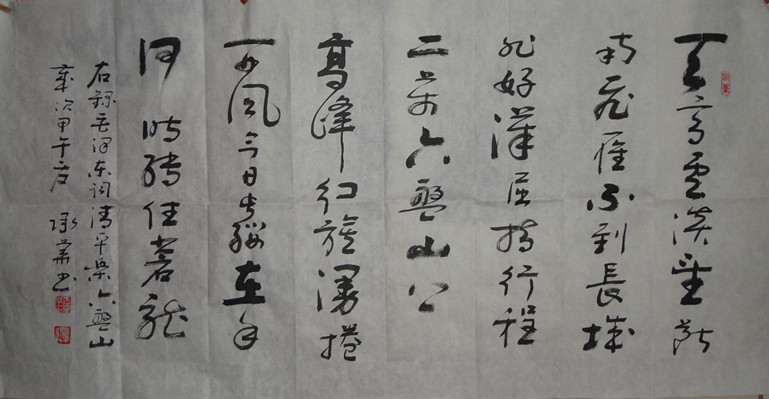 天高雲淡望斷
南飛雁不到長城
非好漢屈指行程
二萬六盤山上
高峰紅旗漫捲
西風今日長纓在手
何時縛住蒼龍
右錄毛澤東詞清平樂六盤山
歲次甲午夏 承书